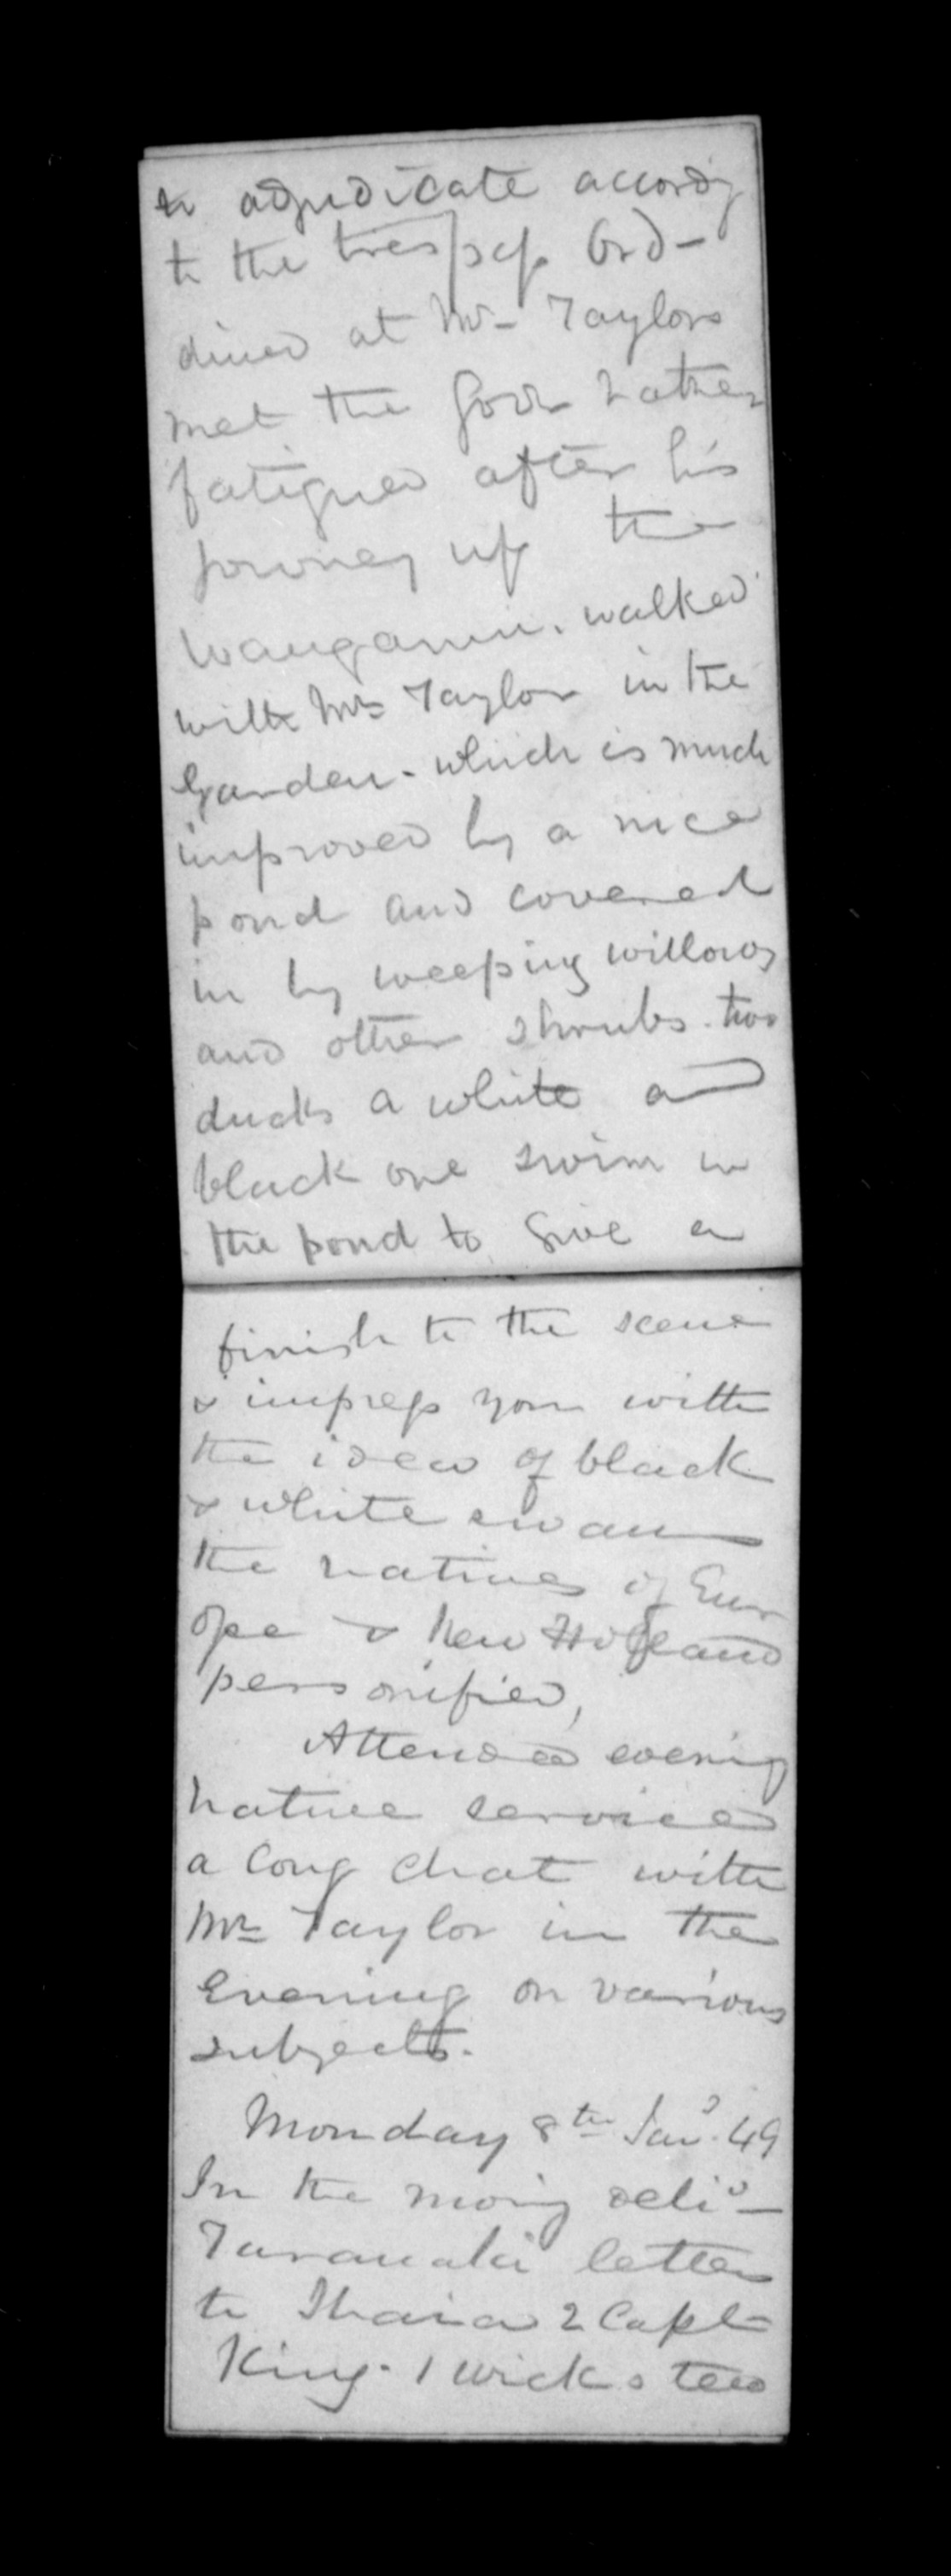 to adjudicate accordg
to the trespass Ord-
dined at Mr Taylors
met the Govr rather
fatigued after his
journey up the
Wanganui. walked
with Mr Taylor in the
Garden. which is much
improved by a nice
pond and covered
in by weeping willows
and other shrubs. two
ducks a white and
black one swim in
the pond to give a
finish to the scene
& impress you with
the idea of black
& white swan
the natives of Eur
ope & New Holland
personified,
Attended evening
native service
a long chat with
Mr Taylor in the
Evening on various
subjects.
Monday 8th Jany. 49
In the morng delid-
Taranaki letters
to Ihaia 2 Capt
King. 1 Wicks